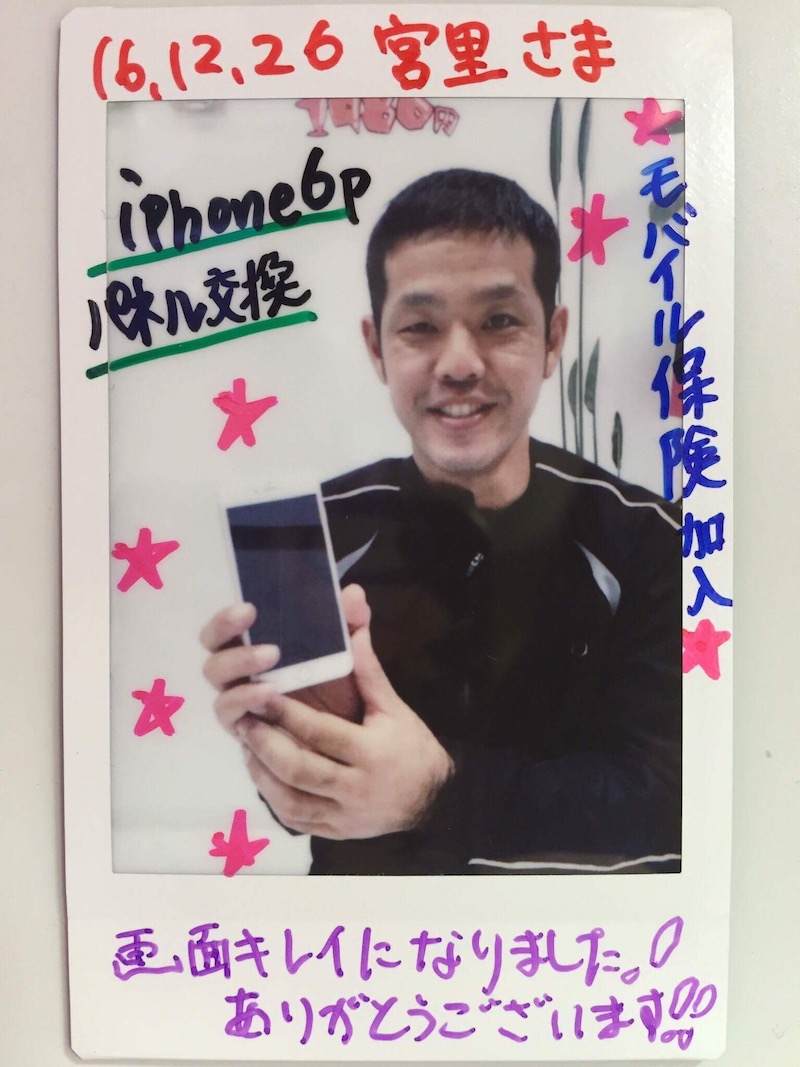 16,12,26 宮里さま
1980円
iphone6p
パネル交換
モバイル保険加入
画面キレイになりました。!
ありがとうございます!!